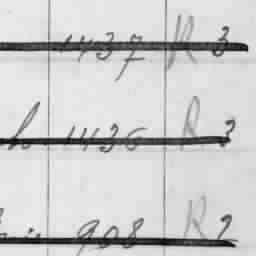 1437 R 3
h 1436 R 3
908 R 2